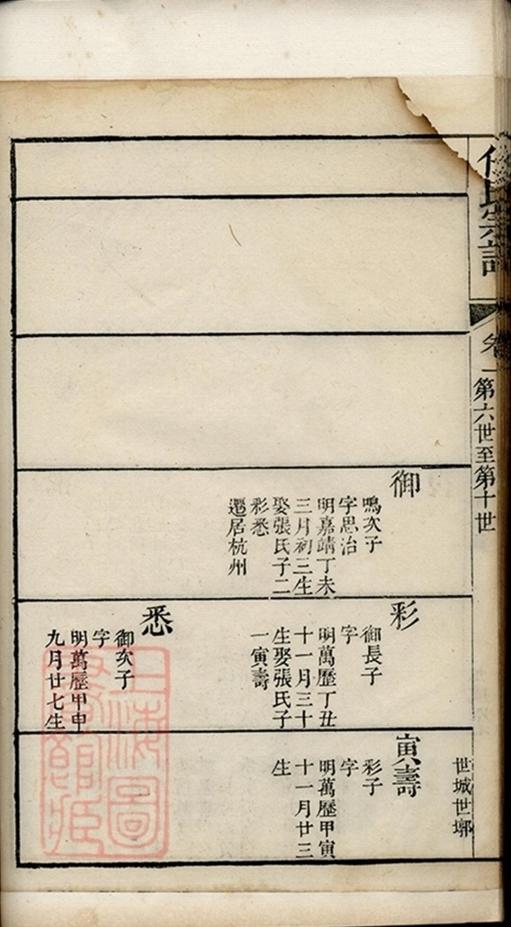 氏宗譜
卷一
第六世至第十世
世城世墎
御
鳴次子
字思治
明嘉靖丁未
三月初三生
娶張氏子二
彩悉
遷居杭州
彩
御長子
字
明萬歷丁丑
十一月三十
生娶張氏子
一寅壽
悉
御次子
字
明萬歷甲申
九月廿七生
寅壽
彩子
字
明萬歷甲寅
十一月廿三
生
上海圖
書館藏